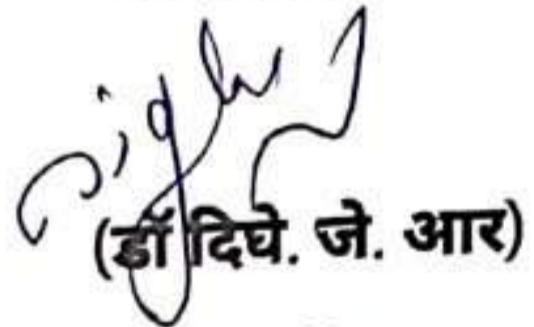 (डॉ दिघे. जे. आर)